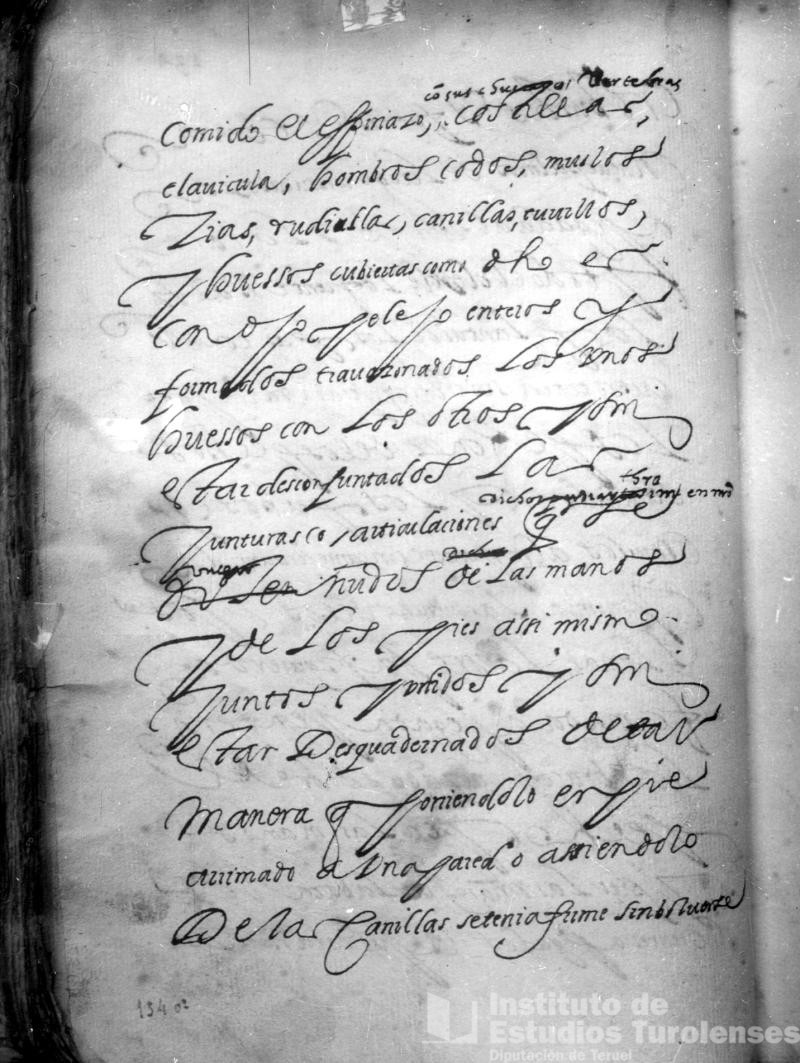 cõ sus vertebras
comido el espinazo, costillas,
clauicula, hombros codos, muslos
Zias, rudillas, canillas, tuuillos,
y huessos cubiertas como dho es
con dho pelejo enteros y
formados trauazonados Los vnos
huessos con Los otros y sin
estar desconjuntados Las
dichos en md
Junturas o, articulaciones q se
nudos de Las manos
y de Los pies assi mismo
Juntos y vnidos y sin
estar Desquadernados de tal
Manera q poniendolo en pie
arrimado a Vna pared o assiendolo
De la Canillas se tenia firme sin boluerse
134 v2
Instituto de
Estudios Turolenses
Diputación de Teruel